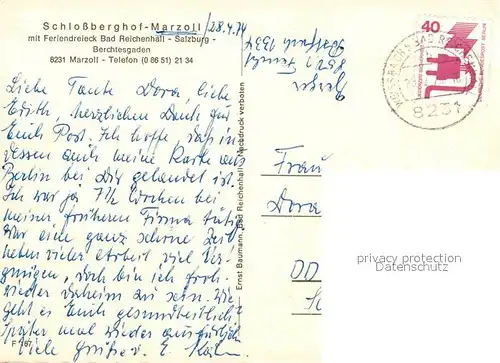 Schloßberghof-Marzoll
mit Feriendreieck Bad Reichenhall - Salzburg -
Berchtesgaden
8231 Marzoll - Telefon (0 86 51) 21 34
28.4.74
Liebe Tante Dora, liebe
Edith, herzlichen Dank für
Eure Post. Ich hoffe, daß in
dessen auch meine Karte aus
Berlin bei Dir gelandet ist.
Ich war ja 7½ Wochen bei
meiner früheren Firma tätig
war eine ganz schöne Zeit
neben vieler Arbeit viel Ver-
gnügen, doch bin ich froh
wieder daheim zu sein. Wie
geht es Euch gesundheitlich?
Später mal wieder ausführlich
Viele Grüße
F 787
Ernst Baumann, Bad Reichenhall - Nachdruck verboten
Postfach 1334
40
DEUTSCHE BUNDESPOST BERLIN
8231
Frau
Dora
DD
privacy protection
Datenschutz